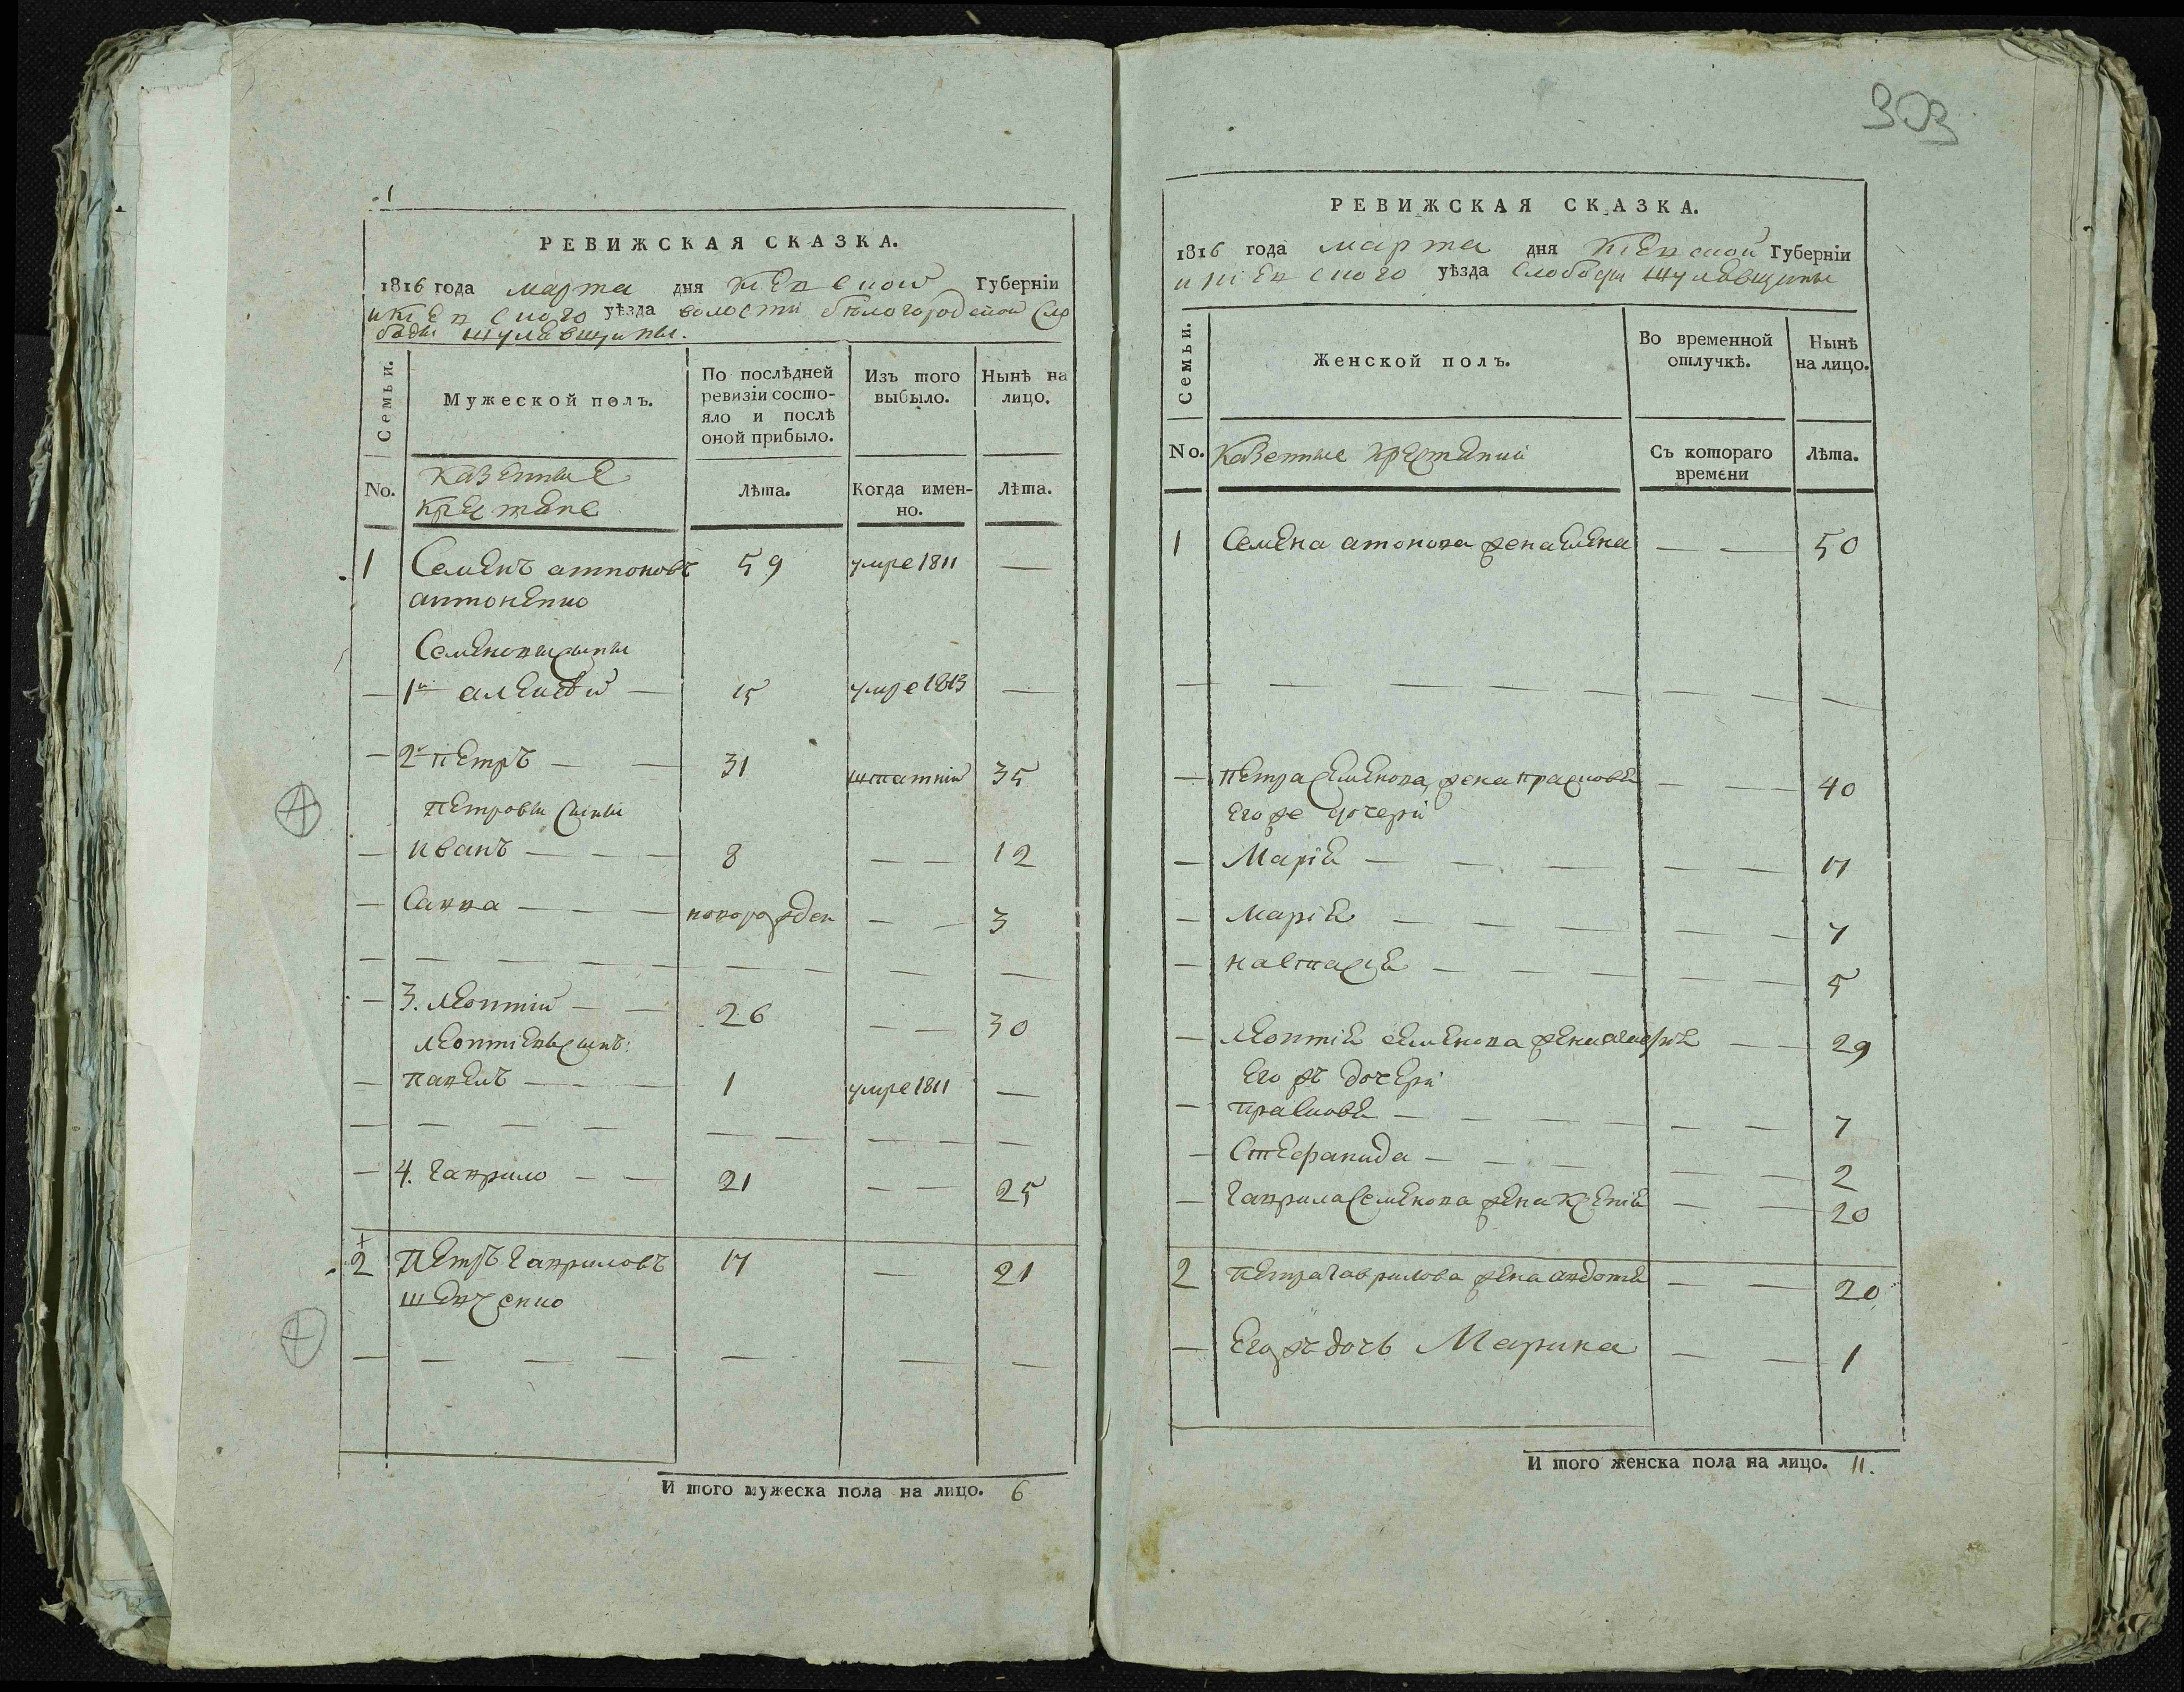 1
РЕВИЖСКАЯ СКАЗКА.
1816 года марта дня Кіевской Губерніи
и Кіевского уѣзда волости бѣлогородской Сло
боды Шулявщины.
Семьи.
Мужеской полъ.
По послѣдней ревизіи состо-
яло и послѣ
оной прибыло.
Изъ того
выбыло.
Нынѣ на
лицо.
No.
Казенные
крестяне
Лѣта.
Когда имен-
но.
Лѣта.
1 Семенъ антоновъ 59 умре 1811 —
антоненко
Семеновы сыны
— 1й алексѣй — 15 умре 1813 —
— 2й Петръ — — 31 штатній 35
Петровы сыны
— иванъ — — — 8 — — 12
— Савва — — — новорожден — — 3
— 3. леонтій — — 26 — — 30
леонтіевъ сынъ:
— павелъ — — — 1 умре 1811 —
— 4. гаврило — — 21 — — 25
2 Петръ гавриловъ 17 — 21
шевченко
И того мужеска пола на лицо. 6
303
РЕВИЖСКАЯ СКАЗКА.
1816 года марта дня Кіевской Губерніи
и Кіевского уѣзда Слободы Шулявщины
Семьи.
Женской полъ.
Во временной
отлучкѣ.
Нынѣ
на лицо.
No.
Казенные крестяній
Съ котораго
времени
Лѣта.
1 Семена атонова жена елена — — 50
— Петра Семенова жена прасковя — — 40
Его же дочери
— Марія — — — — — 17
— Марія — — — — — 7
— настасія — — — — — 5
— леонтія семенова жена — — 29
Его жъ дочери
— прасковя — — — — — 7
— Стефанида — — — — — 2
— гаврила Семенова жена Ксенія — — 20
2 Петра гаврилова жена авдотя — — 20
— Его жъ дочь Марина — — 1
И того женска пола на лицо. 11.